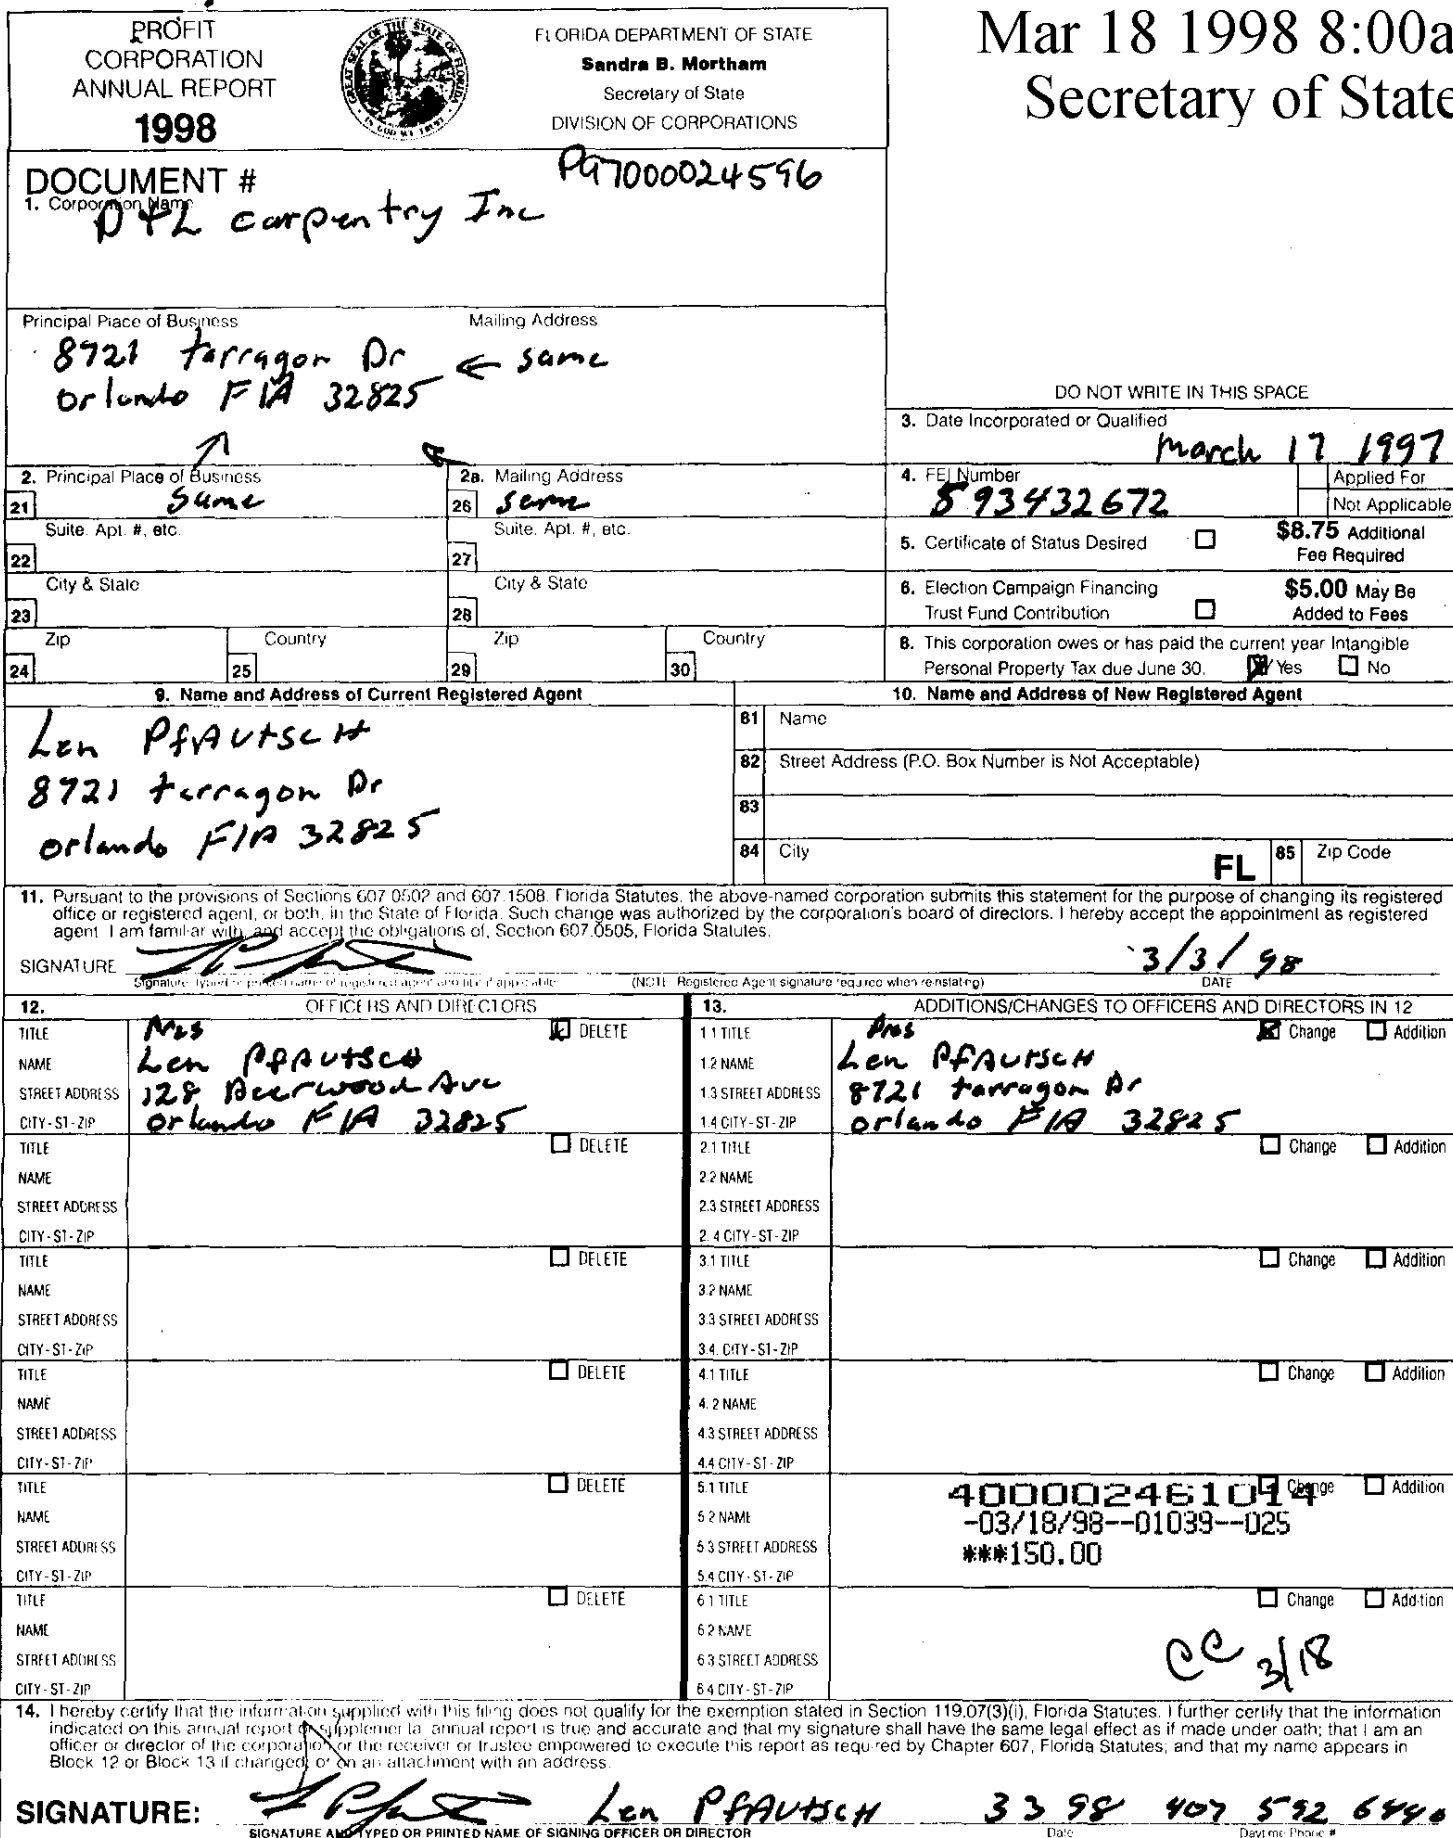 PROFIT
CORPORATION
ANNUAL REPORT
1998
FLORIDA DEPARTMENT OF STATE
Sandra B. Mortham
Secretary of State
DIVISION OF CORPORATIONS
Mar 18 1998 8:00a
Secretary of State
DOCUMENT # P97000024596
1. Corporation Name
D+L carpentry Inc
Principal Place of Business
8721 tarragon Dr
Orlando FlA 32825
Mailing Address
← same
DO NOT WRITE IN THIS SPACE
3. Date Incorporated or Qualified
March 17 1997
2. Principal Place of Business
21 Same
2a. Mailing Address
26 Same
4. FEI Number
593432672
Applied For
Not Applicable
Suite. Apt. #, etc.
22
Suite. Apt. #, etc.
27
5. Certificate of Status Desired ☐ $8.75 Additional
Fee Required
City & State
23
City & State
28
6. Election Campaign Financing
Trust Fund Contribution ☐ $5.00 May Be
Added to Fees
Zip
24
Country
25
Zip
29
Country
30
8. This corporation owes or has paid the current year Intangible
Personal Property Tax due June 30. ☒ Yes ☐ No
9. Name and Address of Current Registered Agent
Len PfAUtscH
8721 tarragon Dr
orlando FlA 32825
10. Name and Address of New Registered Agent
81 Name
82 Street Address (P.O. Box Number is Not Acceptable)
83
84 City FL 85 Zip Code
11. Pursuant to the provisions of Sections 607.0502 and 607.1508. Florida Statutes, the above-named corporation submits this statement for the purpose of changing its registered
office or registered agent, or both, in the State of Florida. Such change was authorized by the corporation's board of directors. I hereby accept the appointment as registered
agent. I am familiar with, and accept the obligations of, Section 607.0505, Florida Statutes.
SIGNATURE 3/3/98
Signature, typed or printed name of registered agent and title if applicable (NOTE: Registered Agent signature required when reinstating) DATE
12. OFFICERS AND DIRECTORS
TITLE Pres ☒ DELETE
NAME Len PfAUtscH
STREET ADDRESS 128 Deerwood Ave
CITY-ST-ZIP Orlando FlA 32825
TITLE ☐ DELETE
NAME
STREET ADDRESS
CITY-ST-ZIP
TITLE ☐ DELETE
NAME
STREET ADDRESS
CITY-ST-ZIP
TITLE ☐ DELETE
NAME
STREET ADDRESS
CITY-ST-ZIP
TITLE ☐ DELETE
NAME
STREET ADDRESS
CITY-ST-ZIP
TITLE ☐ DELETE
NAME
STREET ADDRESS
CITY-ST-ZIP
13. ADDITIONS/CHANGES TO OFFICERS AND DIRECTORS IN 12
1.1 TITLE Pres ☒ Change ☐ Addition
1.2 NAME Len PfAUtscH
1.3 STREET ADDRESS 8721 tarragon Dr
1.4 CITY-ST-ZIP orlando FlA 32825
2.1 TITLE ☐ Change ☐ Addition
2.2 NAME
2.3 STREET ADDRESS
2.4 CITY-ST-ZIP
3.1 TITLE ☐ Change ☐ Addition
3.2 NAME
3.3 STREET ADDRESS
3.4. CITY-ST-ZIP
4.1 TITLE ☐ Change ☐ Addition
4.2 NAME
4.3 STREET ADDRESS
4.4 CITY-ST-ZIP
5.1 TITLE 400002461014 ☐ Change ☐ Addition
5.2 NAME -03/18/98--01039--025
5.3 STREET ADDRESS ***150.00
5.4 CITY-ST-ZIP
6.1 TITLE ☐ Change ☐ Addition
6.2 NAME
6.3 STREET ADDRESS CC 3/18
6.4 CITY-ST-ZIP
14. I hereby certify that the information supplied with this filing does not qualify for the exemption stated in Section 119.07(3)(i), Florida Statutes. I further certify that the information
indicated on this annual report or supplemental annual report is true and accurate and that my signature shall have the same legal effect as if made under oath; that I am an
officer or director of the corporation or the receiver or trustee empowered to execute this report as required by Chapter 607, Florida Statutes; and that my name appears in
Block 12 or Block 13 if changed, or on an attachment with an address.
SIGNATURE: Len PfAUtscH 3 3 98 407 592 6440
SIGNATURE AND TYPED OR PRINTED NAME OF SIGNING OFFICER OR DIRECTOR Date Daytime Phone #